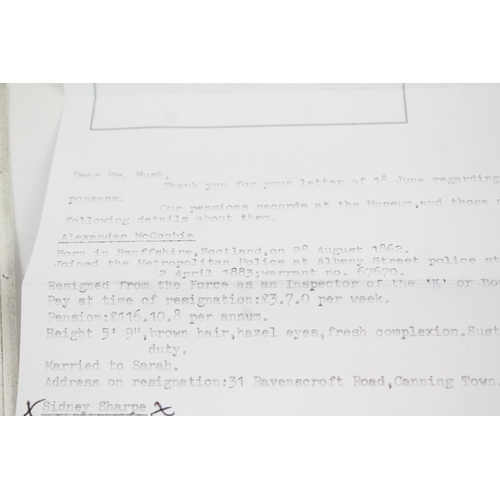 Dear Mr. Munk,
Thank you for your letter of 18 June regarding
possess.
Our pensions records at the Museum,and those
following details about them.
Alexander McCombie
Born in Banffshire,Scotland,on 28 August 1862.
Joined the Metropolitan Police at Albany Street police st
2 April 1883;warrant no. 67670.
Resigned from the Force as an Inspector of the 'K' or Bo
Pay at time of resignation:£3.7.0 per week.
Pension:£116.10.8 per annum.
Height 5' 9",brown hair,hazel eyes,fresh complexion.Sust
duty.
Married to Sarah.
Address on resignation:31 Ravenscroft Road,Canning Town.
X Sidney Sharpe X